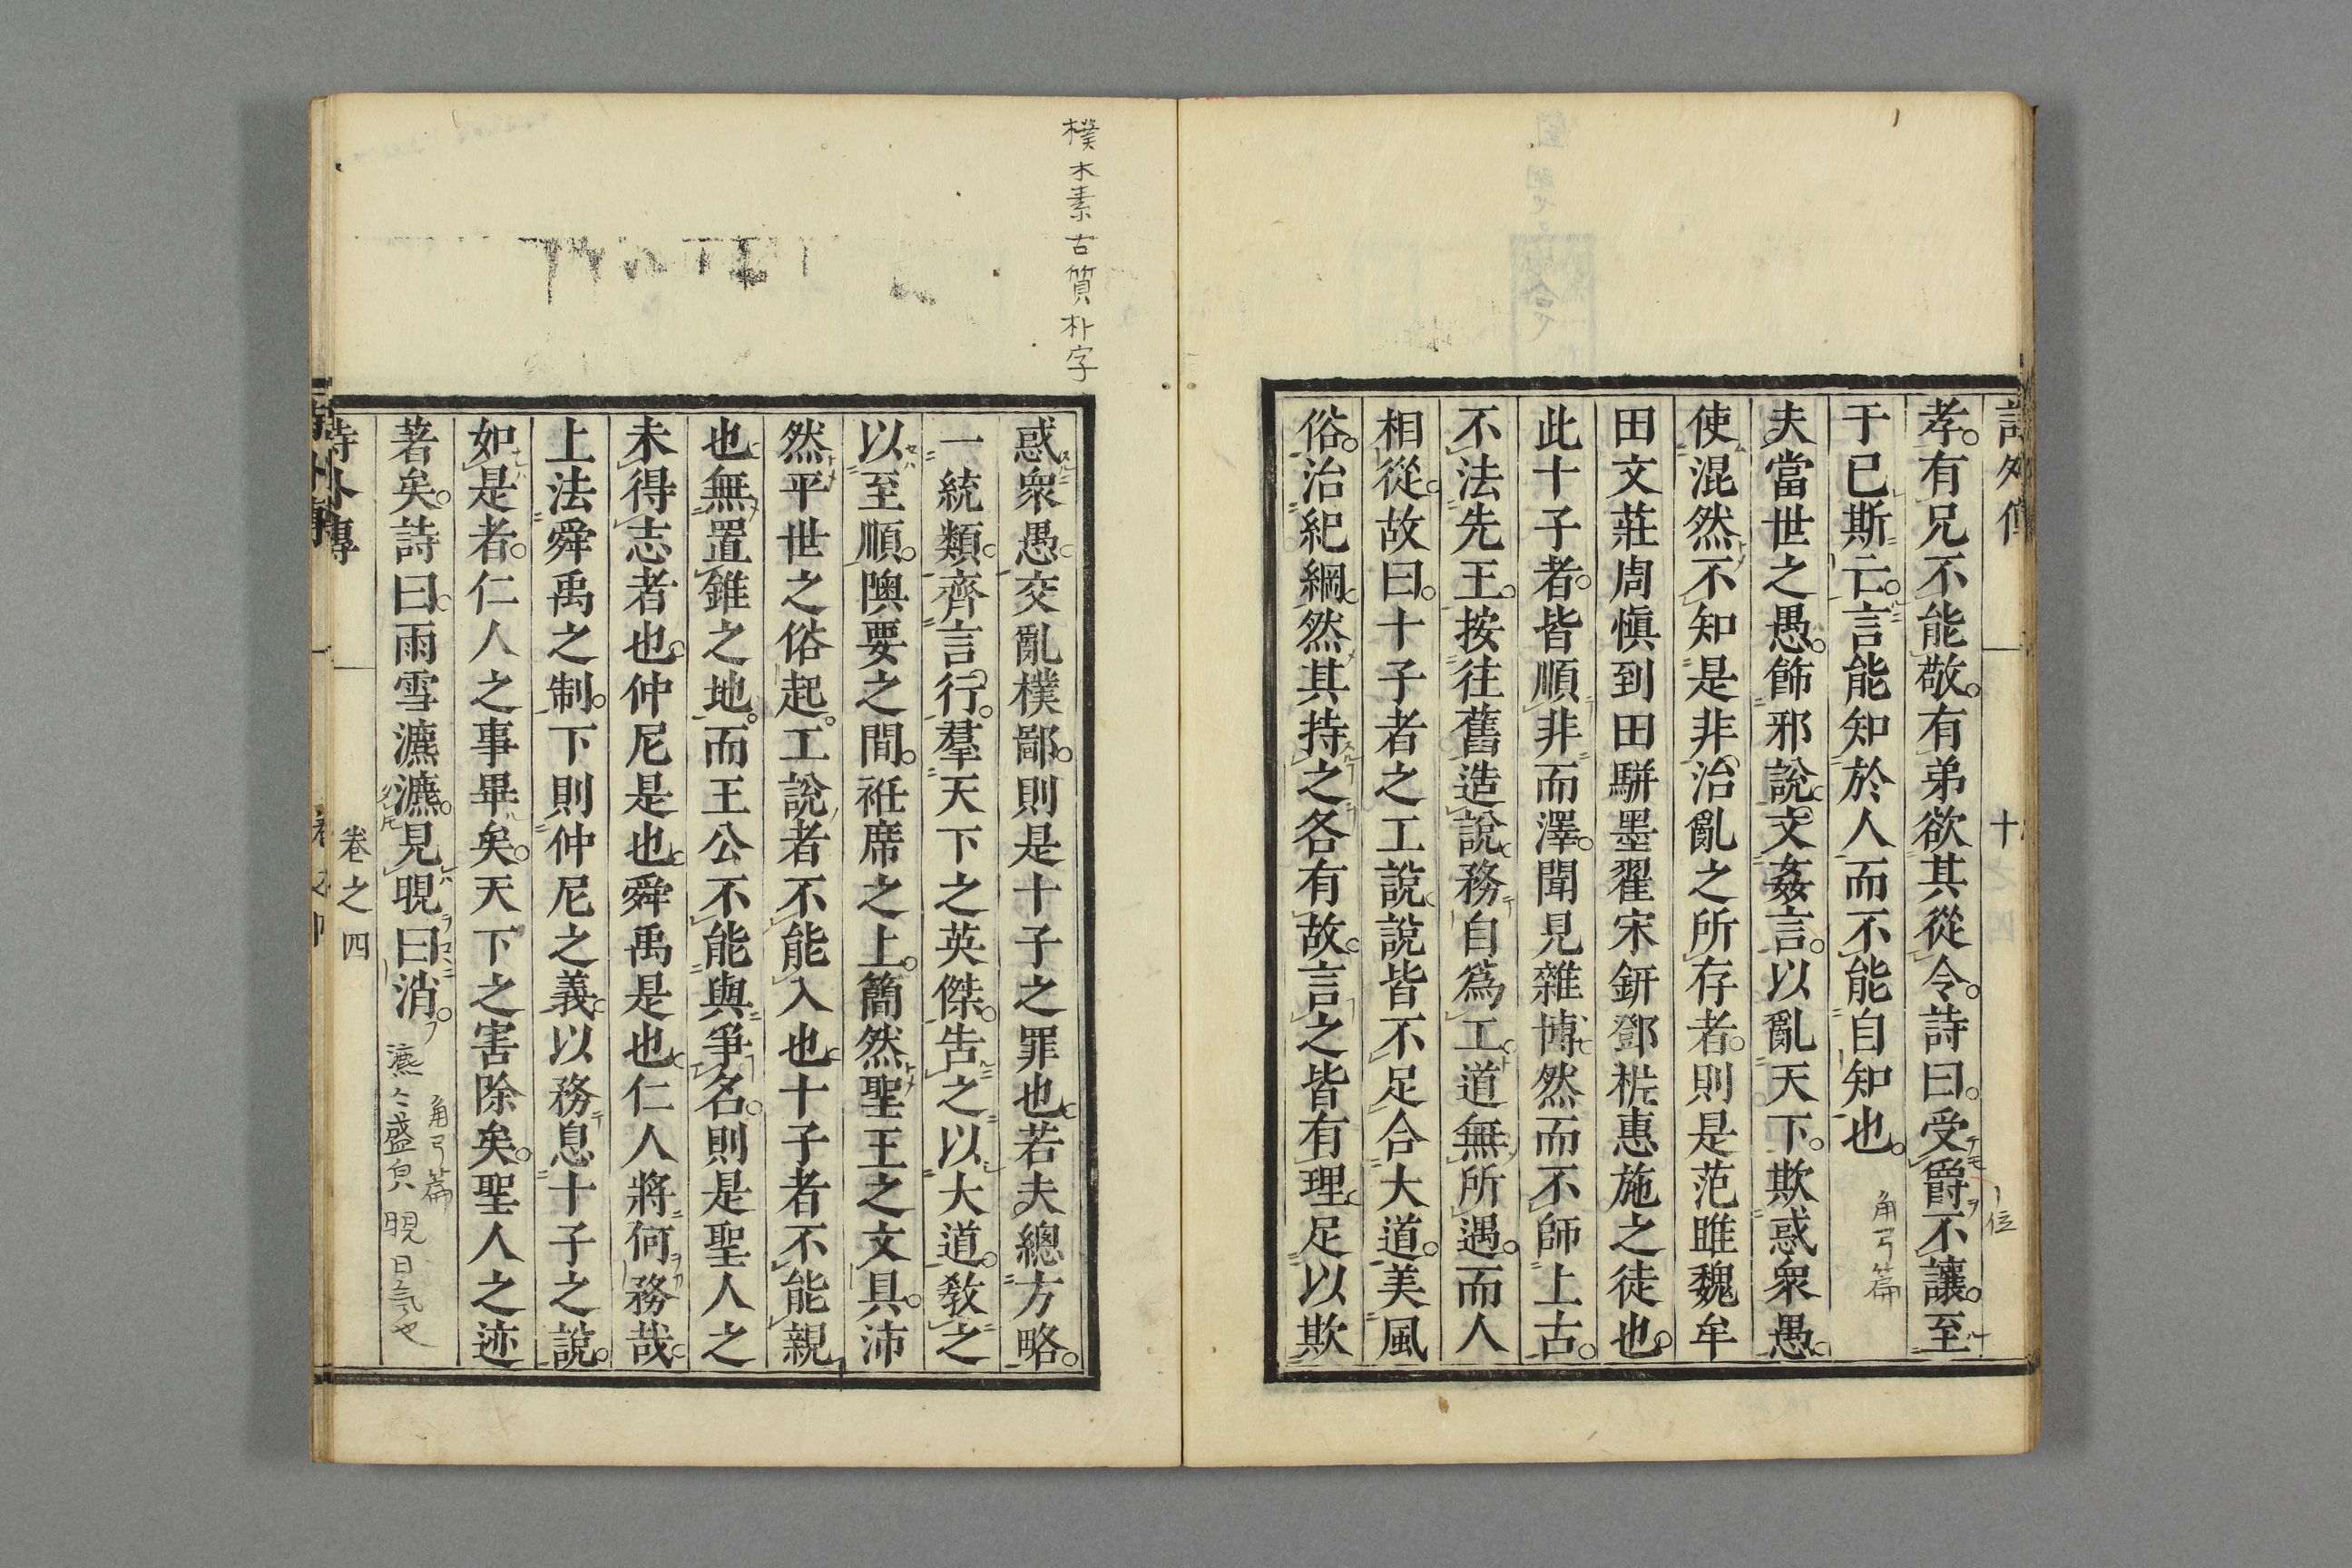 孝。有兄不能敬。有弟欲其從令。詩曰。受爵不讓。至
于已斯亡。言能知於人而不能自知也。
角弓篇
夫當世之愚。飾邪說。文姦言。以亂天下。欺惑衆愚。
使混然不知是非治亂之所存者。則是范雎魏牟
田文莊周愼到田駢墨翟宋鈃鄧析惠施之徒也。
此十子者。皆順非而澤。聞見雜博。然而不師上古。
不法先王。按往舊造說。務自爲工。道無所遇。而人
相從。故曰。十子者之工說。說皆不足合大道。美風
俗。治紀綱。然其持之各有故。言之皆有理。足以欺
樸木素古質朴字
惑衆愚。交亂樸鄙。則是十子之罪也。若夫總方略。
一統類。齊言行。羣天下之英傑。告之以大道。敎之
以至順。隩要之間。衽席之上。簡然聖王之文具。沛
然平世之俗起。工說者不能入也。十子者不能親
也。無置錐之地。而王公不能與爭名。則是聖人之
未得志者也。仲尼是也。舜禹是也。仁人將何務哉。
上法舜禹之制。下則仲尼之義。以務息十子之說。
如是者。仁人之事畢矣。天下之害除矣。聖人之迹
著矣。詩曰。雨雪瀌瀌。見晛曰消。
角弓篇
瀌々盛皃 晛日氣也
詩外傳 卷之四